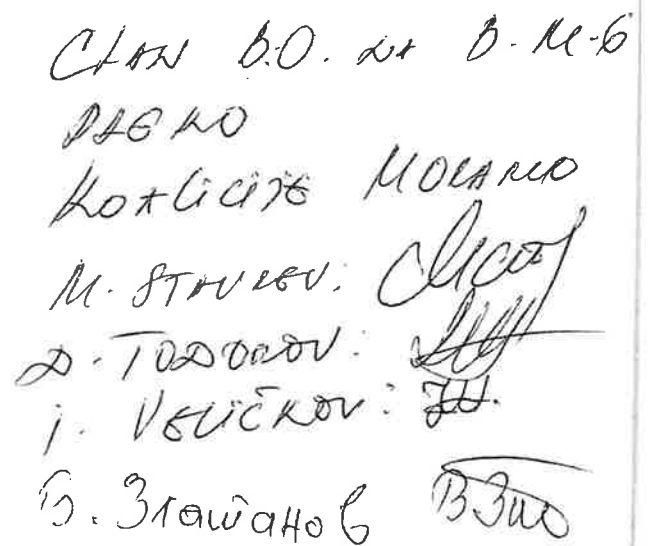 ČLAN B.O. NA B.M-6
PREKO
KOALICIJE MORAMO
M. STAVREV:
D. TODOROV:
I. VELIČKOV:
Б. Златанов